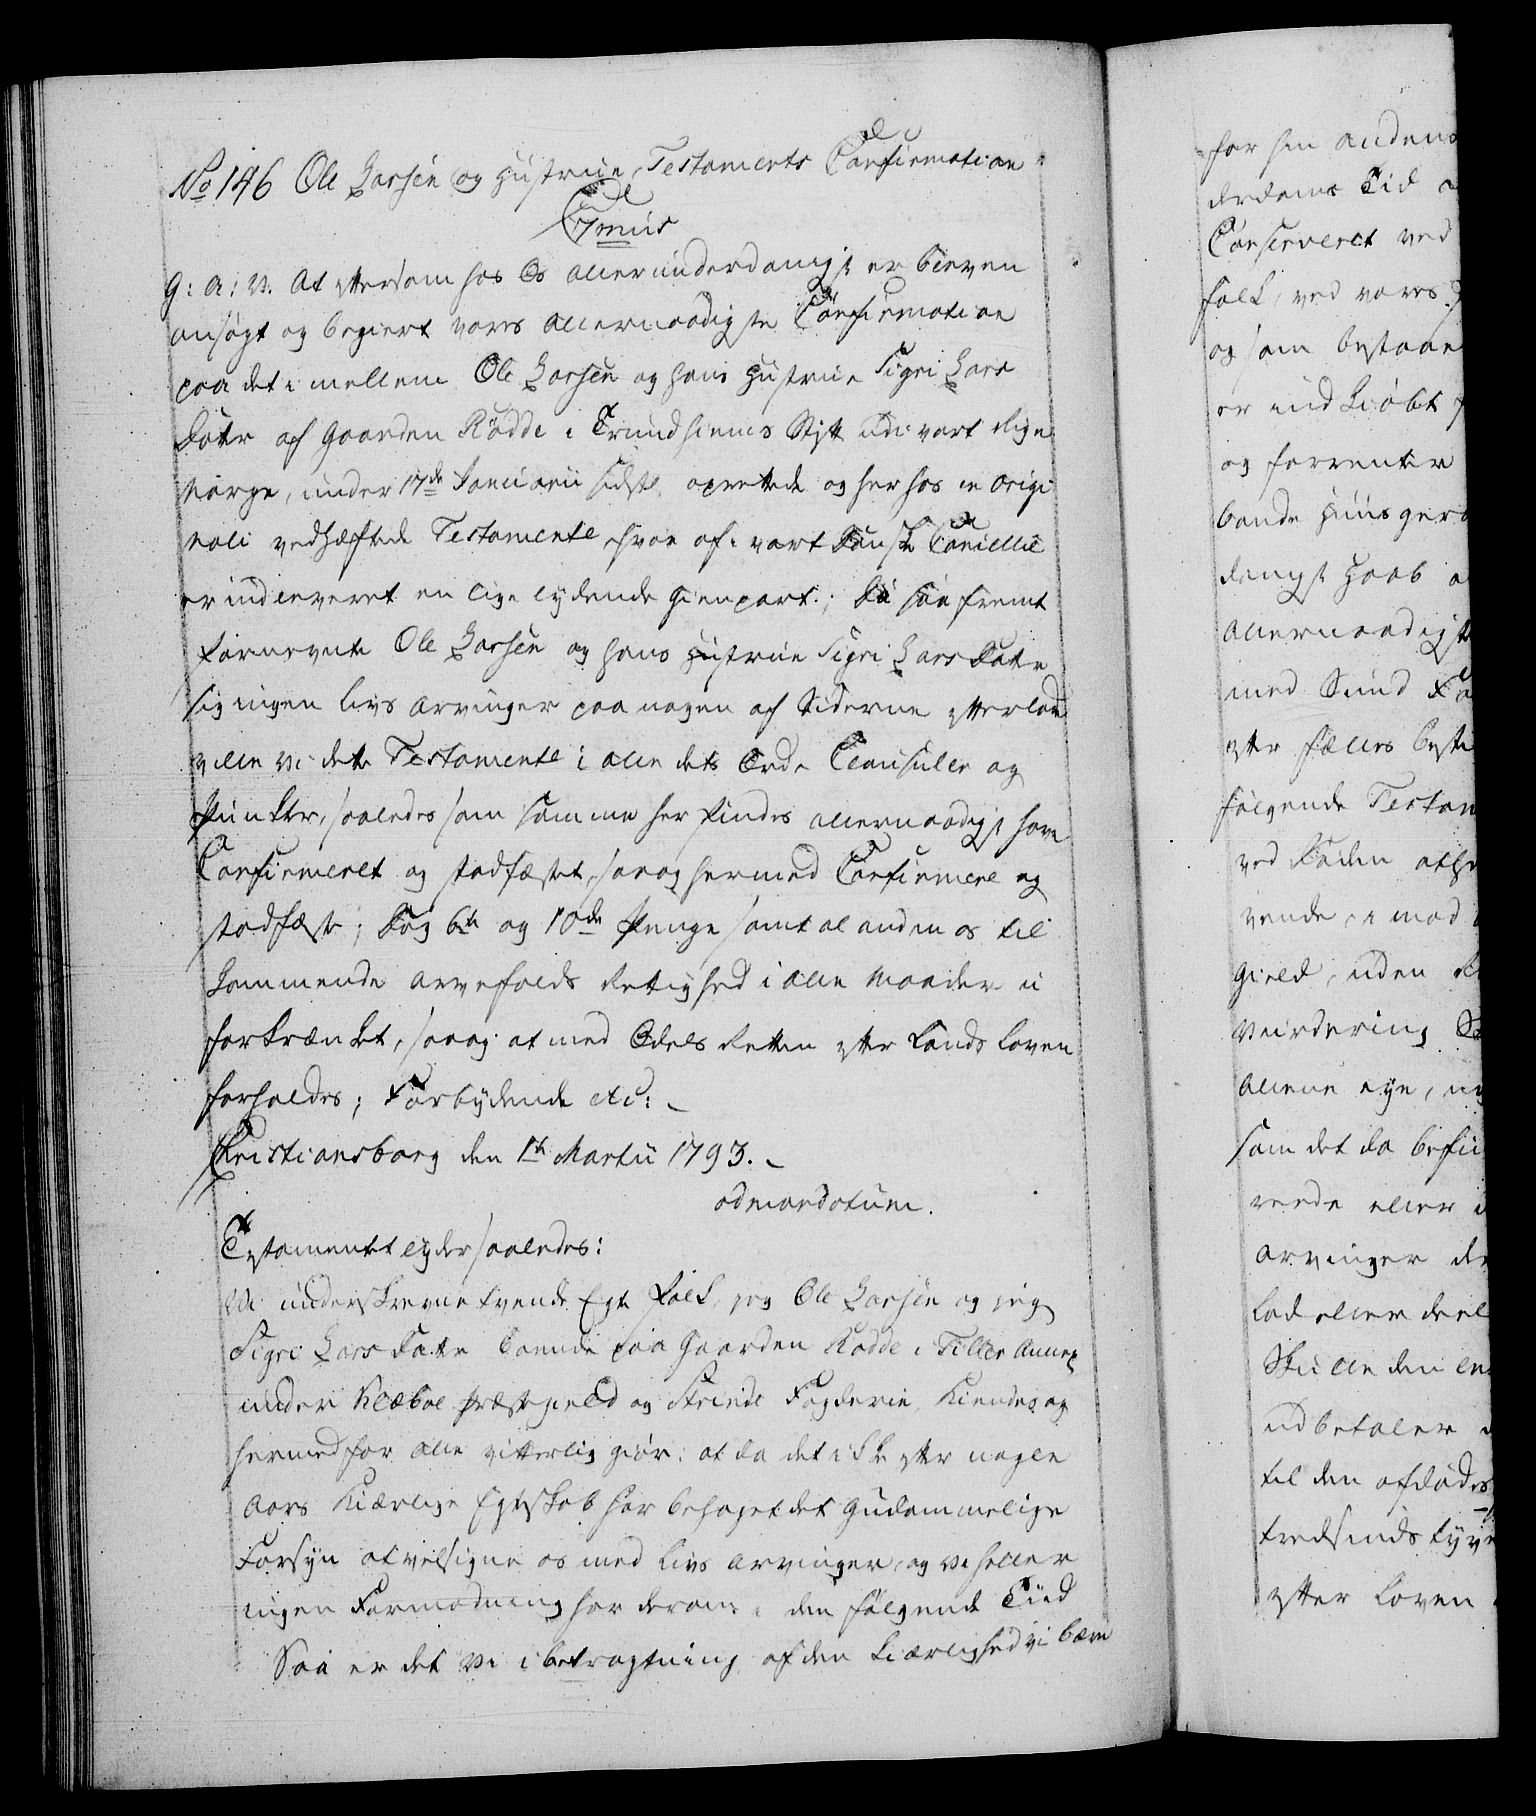 No 146 Ole Larsen og Hustrue, Testaments Confirmation
C7mus
G: A: V. At eftersom hos Os allerunderdanigst er bleven
ansøgt og begiert vores allernaadigste Confirmation
paa det imellem Ole Larsen og hans Hustrue Sigri Lars
Datter af Gaarden Rødde i Trundhiems Stift udi vort Rige
Norge, under 17de Januarii sidstl. oprettede og herhos in origi
nali vedhæftede Testamente, hvor af i vort Danske Cancellie
er indleveret en lige lydende Gienpart; Da saafremt
fornevnte Ole Larsen og hans Hustrue Sigri Lars Datter
sig ingen livs Arvinger paa nogen af Siderne efterlade
ville vi dette Testamente i alle dets Ord Clausuler og
Puncter, saaledes som samme her findes allernaadigst have
Confirmeret og stadfæstet, saa og hermed Confirmere og
stadfæste; Dog 6te og 10de Penge samt al anden os til
kommende arvefalds Rettighed i alle Maader u
forkrænket, saa og at med Odels Retten efter Lands Loven
forholdes; Forbydende etc: -
Christiansborg den 1te Martii 1793. -
ad mandatum.
Testamentet lyder saaledes:
Vi underskrevne tvende Egte Folk, jeg Ole Larsen og jeg
Sigri Lars Datter boende paa Gaarden Rødde i Tiller Annex
under Klæboe Præstegield og Strinde Fogderie, Kiendes og
hermed for alle vitterlig giør: at da det ikke efter nogle
Aars Kiærlige Egteskab har behaget det Gudommelige
Forsyn at velsigne os med livs Arvinger, og vi heller
ingen Formodning har derom i den følgende Tiid
Saa er det vi i betragtning af den Kiærlighed vi bære
for hin anden
derdoms Tid
Conserveret ved
Folk, ved vores
og som bestaae
er indkiøbt
og forrenter
bande Huusgera
danigst Haab
allernaadigst
med Sund Fo
efter fælles beste
følgende Testam
ved Døden
vende, imod
Gield, uden
Vurdering
allene eye,
som det da befin
rende eller
Arvinger de
Lod eller deel
Skulle den
udbetaler
til den afdødes
tredsindstyve
efter Loven